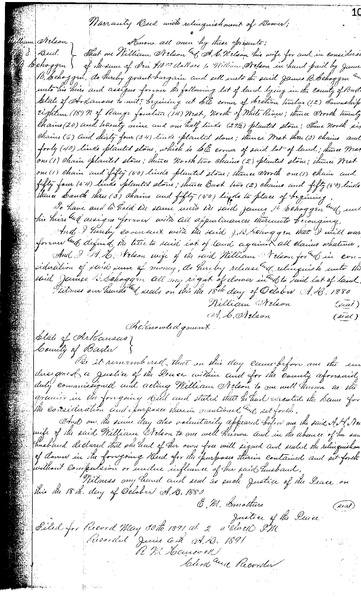 10
Warranty Deed with relinquishment of Dower.
William Nelson Know all men by these presents;
Deed That we William Nelson & A. C. Nelson his wife for and in consideration
Schoggen of the sum of dollars to William Nelson in hand paid by James
B. Schoggen, do hereby grant bargain and sell unto the said James B. Schoggen and
unto his heirs and assigns forever the following lot of land lying in the County of
State of Arkansas to wit; beginning at corner of Section twelve (12) Township
eighteen (18) N of Range fourteen (14) West, North of White River; thence North twenty
chains (20) and twenty nine and one half links (29½) planted stone; thence North six
chains and thirty four links planted stone; thence West three (3) chains and
forty (40) links planted stone, which is corner of said lot of land; thence West
one (1) chain planted stone; thence North two chains (2) planted stone; thence West
one (1) chain and fifty links planted stone; thence North one (1) chain and
fifty four (54) links planted stone; thence East two (2) chains and fifty links
thence South three (3) chains and fifty links to place of beginning
To have and to hold the same unto the said James B. Schoggen and
his heirs & assigns forever with all appurtenances thereunto belonging.
And I hereby covenant with the said J. B. Schoggen that I will war
forever & defend the title to said lot of land against all claims whatever.
And I A. C. Nelson wife of the said William Nelson for & in con
sideration of said sum of money, do hereby release & relinquish unto the
said James B. Schoggen all my right of dower in & to said lot of land.
Witness our hands & seals on this the 18th day of October A.D. 1880
William Nelson (seal)
A. C. Nelson (seal)
Acknowledgement
State of Arkansas
County of Baxter
Be it remembered, that on this day came before me the un
designed, a Justice of the Peace within and for the County aforesaid
duly commissioned and acting William Nelson to me well known as the
grantor in the foregoing Deed and stated that he had executed the same for
the consideration and purposes therein mentioned and set forth.
And on the same day also voluntarily appeared before me the said A. C. Nelson
wife of the said William Nelson to me well known and in the absence of her said
husband declared that she had of her own free will signed and sealed the relinquishment
of dower in the foregoing Deed for the purposes therein contained and set forth
without compulsion or undue influence of her said husband.
Witness my hand and seal as such Justice of the Peace on
this the 18th day of October A.D. 1880
E. M. Smothers (seal)
Justice of the Peace
Filed for Record May 30th 1891 at 2 o'clock P.M.
Recorded June 6th A.D. 1891
R. M. Hancock
Clerk and Recorder